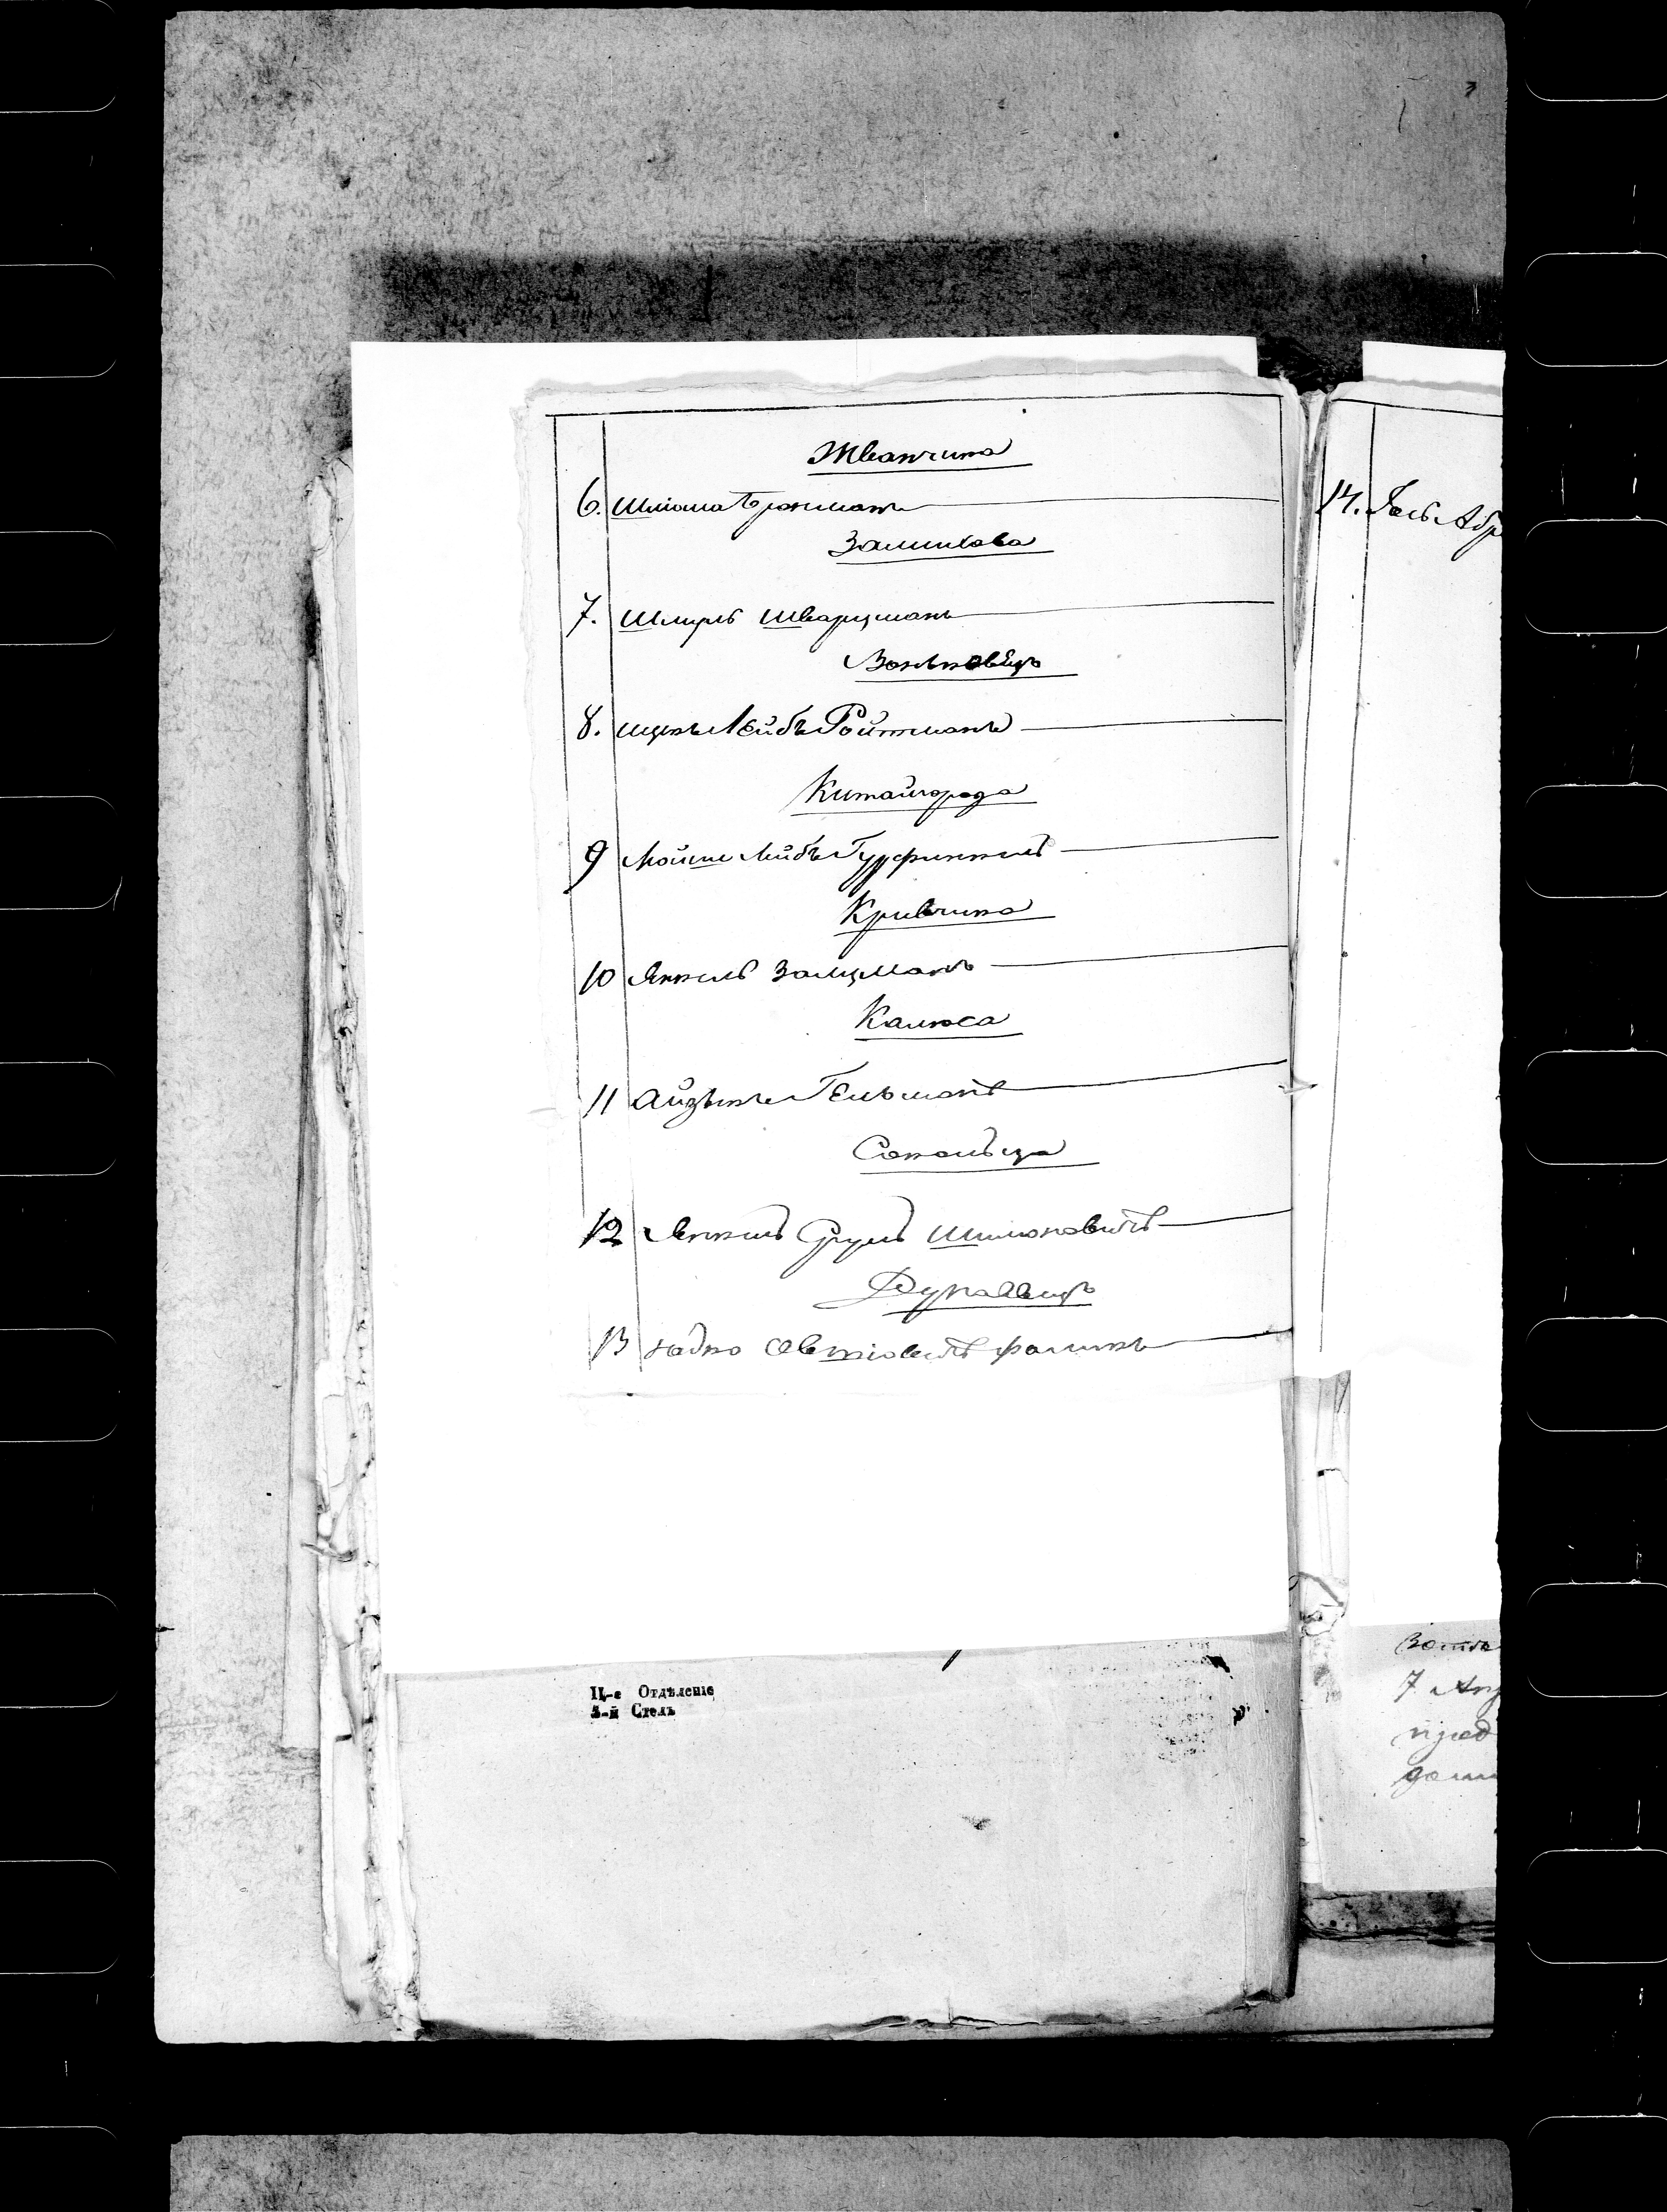 Жванчика
6. Шліома Трахман
Замихова
7. Шмуль Шварцманъ
Воньковецъ
8. Ицикъ Лейбъ Ройтманъ
Китайгорода
9 Мойше Лейбъ Гурфинкель
Кривчика
10 Янкель Залцманъ
Калюса
11 Айзикъ Гельманъ
Сокольца
12 Янкель Сруль Шимоновичъ
Дунаевецъ
13
14. Гось Абр
II-е Отдѣленіе
4-й Столъ
7
пред